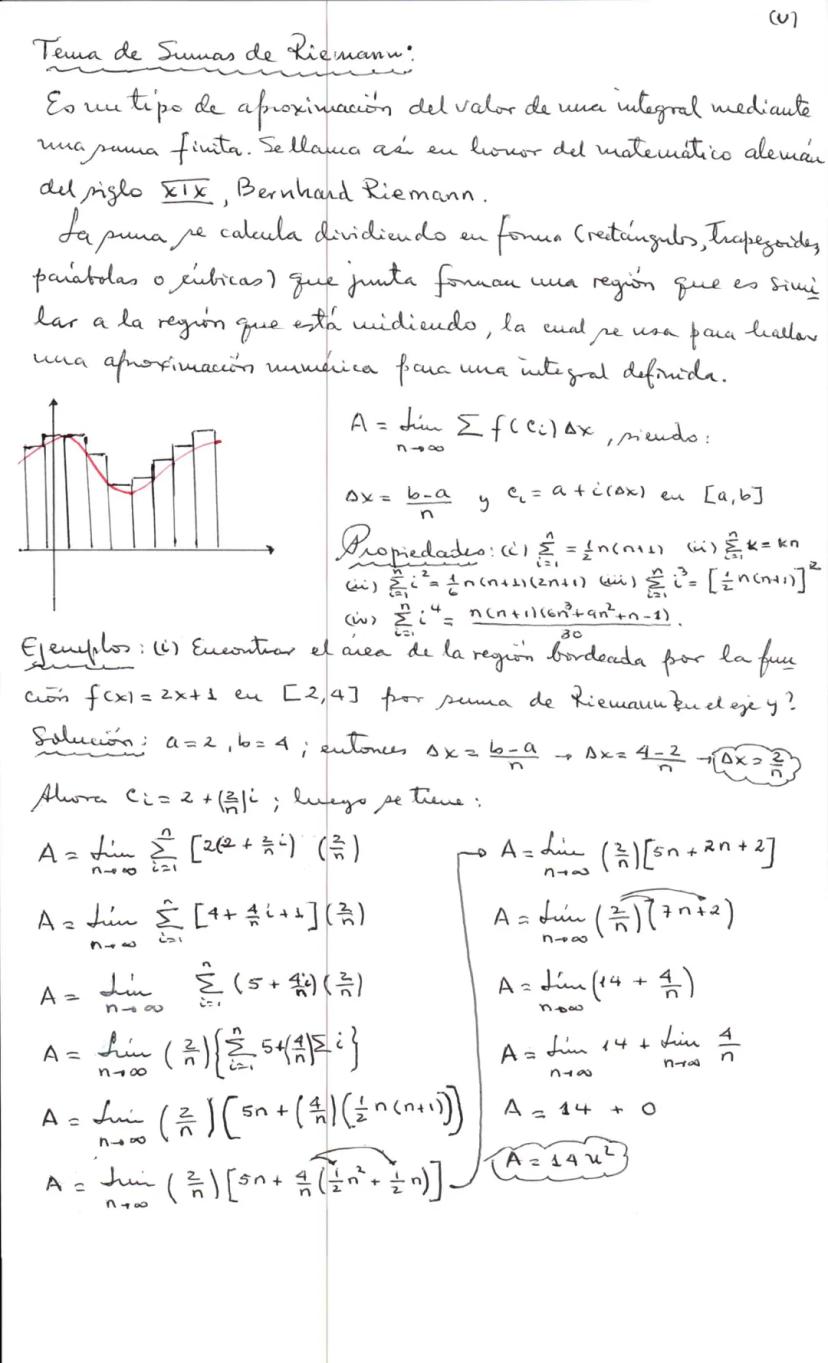 (V)
Tema de Sumas de Riemann:
Es un tipo de aproximación del valor de una integral mediante
una suma finita. Se llama así en honor del matemático alemán
del siglo XIX, Bernhard Riemann.
La suma se calcula dividiendo en forma (rectángulos, Trapezoides,
parábolas o cúbicas) que junta forman una región que es simi
lar a la región que está midiendo, la cual se usa para hallar
una aproximación numérica para una integral definida.
A = Lim n→∞ Σ f(ci) Δx, siendo:
Δx = (b-a)/n y ci = a + i(Δx) en [a,b]
Propiedades: (i) Σ_{i=1}^{n} = 1/2 n(n+1) (ii) Σ_{i=1}^{n} k = kn
(ii) Σ_{i=1}^{n} i² = 1/6 n(n+1)(2n+1) (iii) Σ_{i=1}^{n} i³ = [1/2 n(n+1)]²
(iv) Σ_{i=1}^{n} i⁴ = n(n+1)(6n³+9n²+n-1)/30.
Ejemplos: (i) Encontrar el área de la región bordeada por la fun
ción f(x) = 2x+1 en [2,4] por suma de Riemann en el eje y?
Solución: a=2, b=4; entonces Δx = (b-a)/n → Δx = (4-2)/n → Δx = 2/n
Ahora Ci = 2 + (2/n)i; luego se tiene:
A = Lim n→∞ Σ_{i=1}^{n} [2(2 + 2/n i) (2/n)
A = Lim n→∞ Σ_{i=1}^{n} [4 + 4/n i + 1] (2/n)
A = Lim n→∞ Σ_{i=1}^{n} (5 + 4i/n) (2/n)
A = Lim n→∞ (2/n) {Σ_{i=1}^{n} 5 + (4/n) Σ i}
A = Lim n→∞ (2/n) [5n + (4/n) (1/2 n(n+1))]
A = Lim n→∞ (2/n) [5n + 4/n (1/2 n² + 1/2 n)]
A = Lim n→∞ (2/n) [5n + 2n + 2]
A = Lim n→∞ (2/n) (7n+2)
A = Lim n→∞ (14 + 4/n)
A = Lim n→∞ 14 + Lim n→∞ 4/n
A = 14 + 0
A = 14 u²